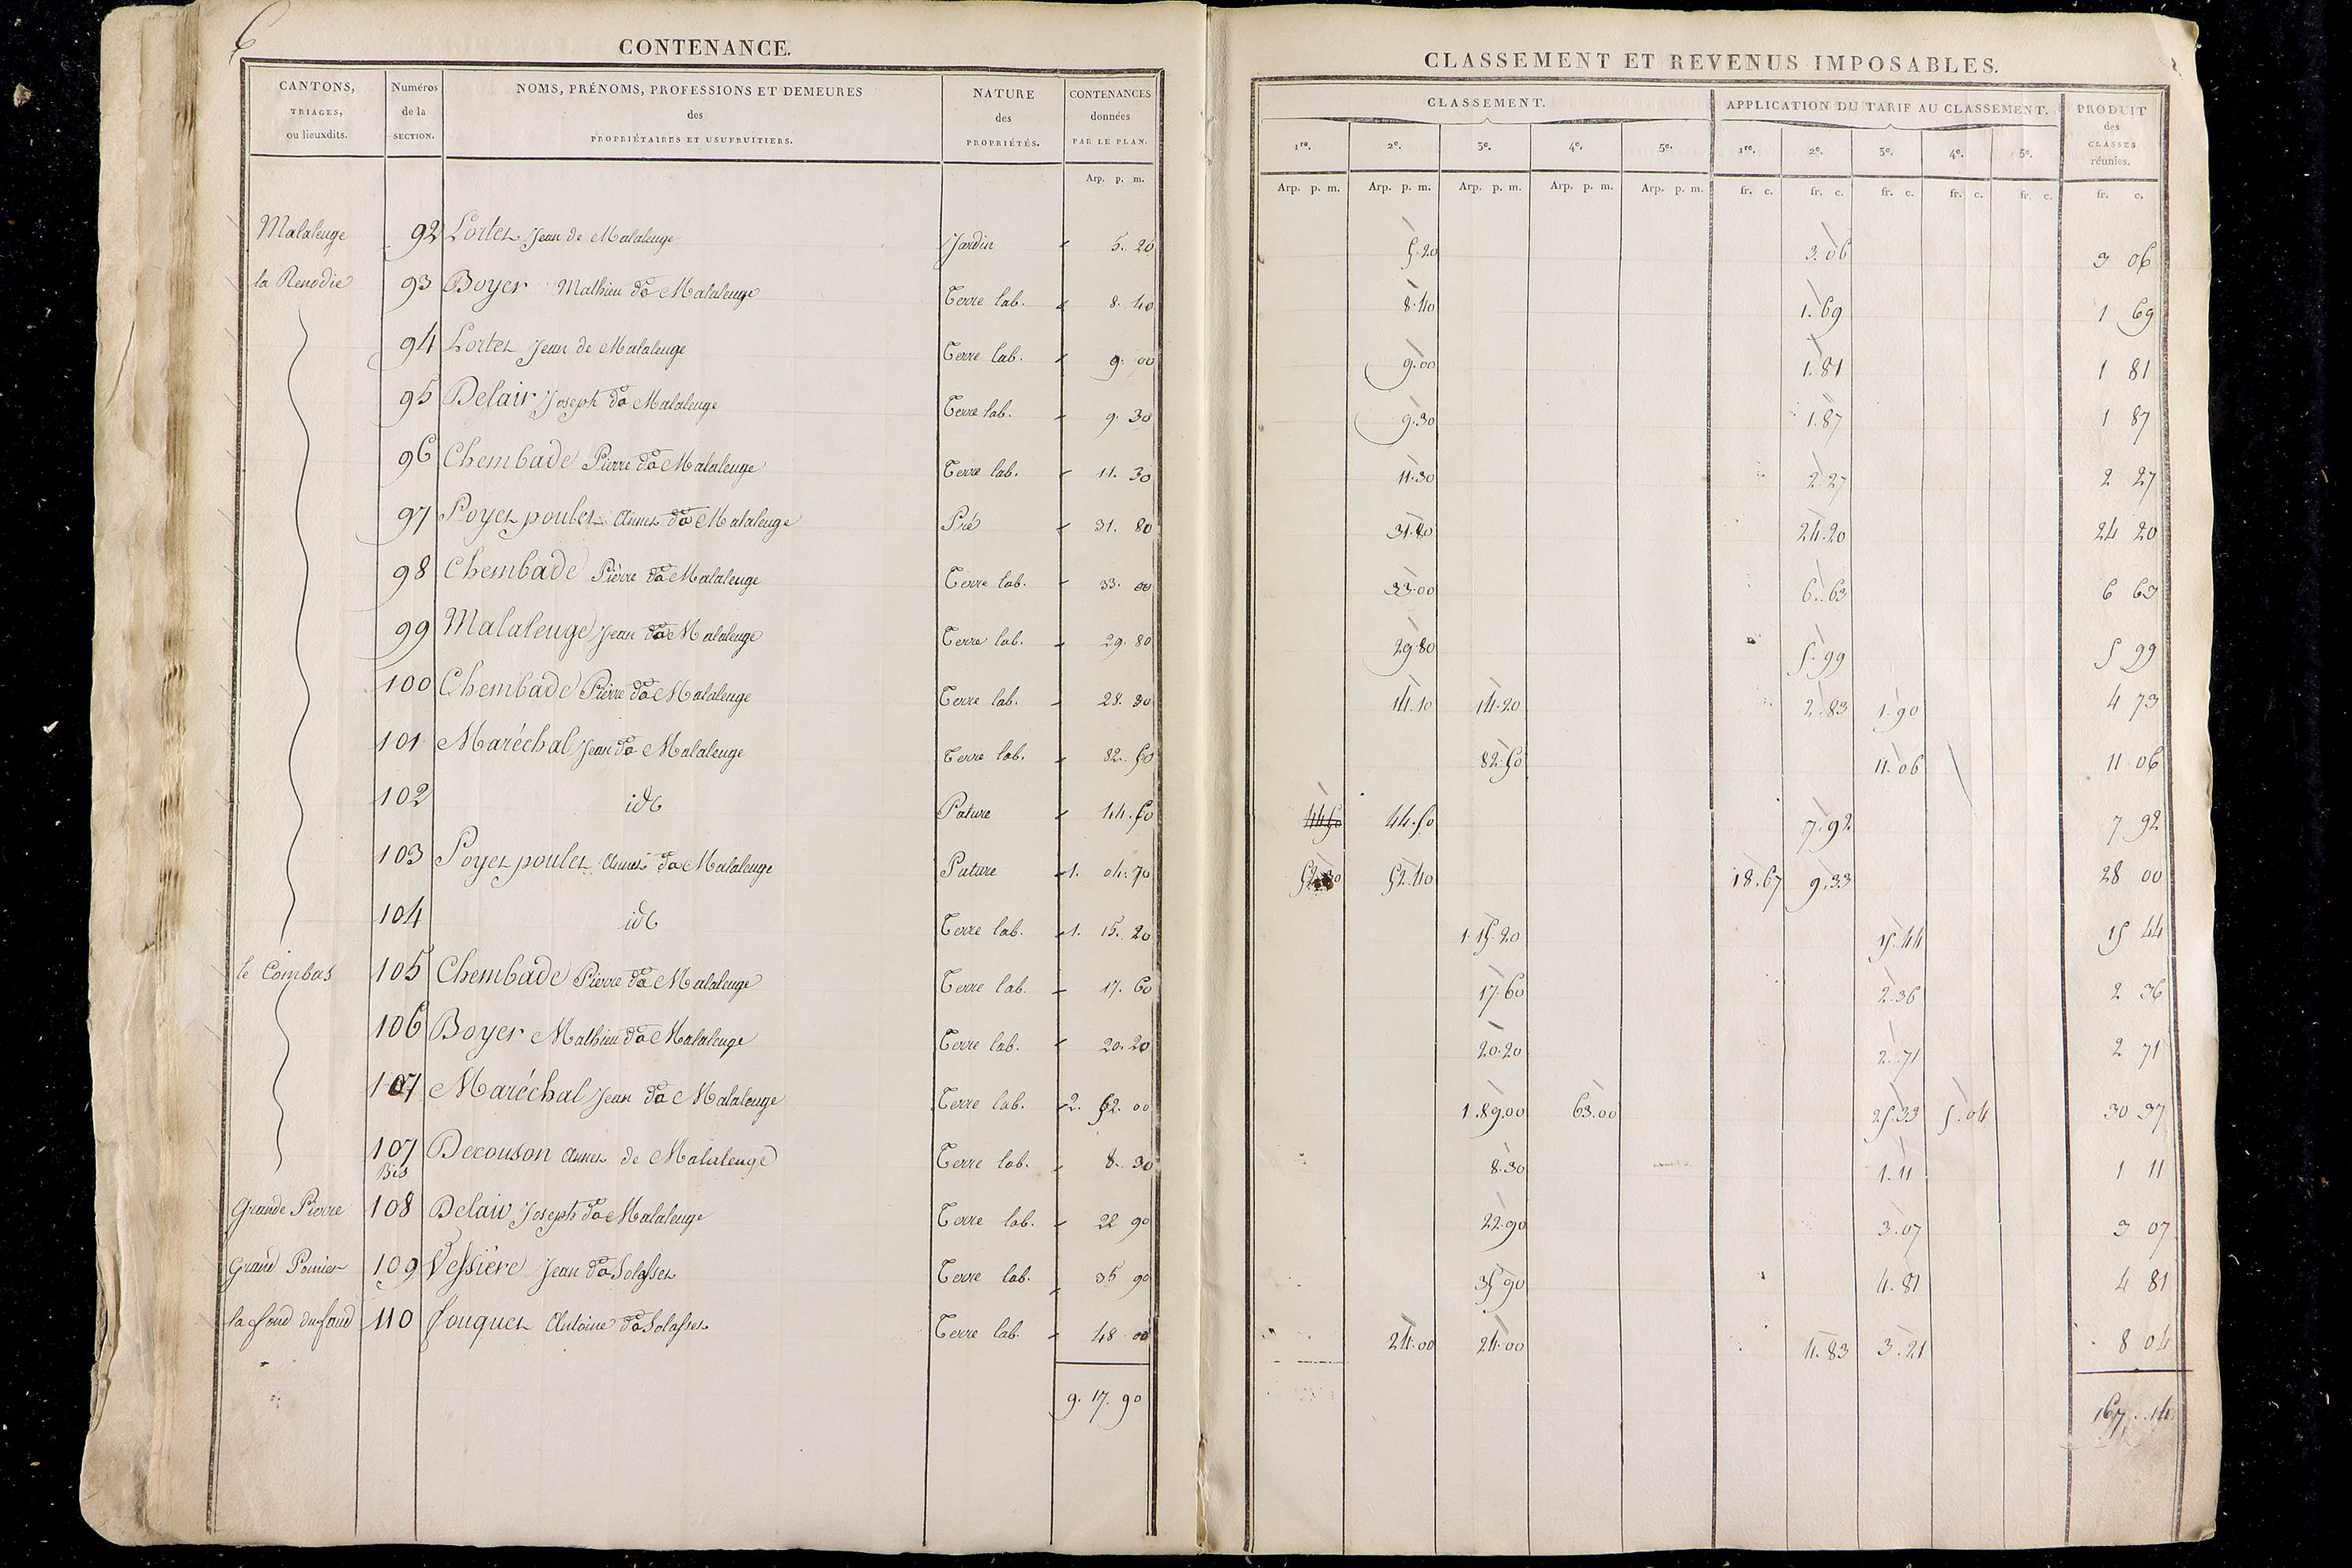 6
CONTENANCE.
CANTONS, TRIAGES, ou lieuxdits. Numéros de la SECTION. NOMS, PRÉNOMS, PROFESSIONS ET DEMEURES des PROPRIÉTAIRES ET USUFRUITIERS. NATURE des PROPRIÉTÉS. CONTENANCES données PAR LE PLAN.
Arp. p. m.
Malaleuge 92 Jean de Malaleuge Jardin 5. 20
la Renodie 93 Boyer Mathieu do Malaleuge Terre lab. 8. 40
94 Jean de Malaleuge Terre lab. 9. 00
95 Delair Joseph do Malaleuge Terre lab. 9. 30
96 Chembade Pierre do Malaleuge Terre lab. 11. 30
97 do Malaleuge Pré 31. 80
98 Chembade Pierre do Malaleuge Terre lab. 33. 00
99 Malaleuge Jean do Malaleuge Terre lab. 29. 80
100 Chembade Pierre do Malaleuge Terre lab. 28. 30
101 Maréchal Jean do Malaleuge Terre lab. 82. 50
102 id Pature 44. 50
103 do Malaleuge Pature 1. 04. 70
104 id Terre lab. 1. 15. 20
le Combas 105 Chembade Pierre do Malaleuge Terre lab. 17. 60
106 Boyer Mathieu do Malaleuge Terre lab. 20. 20
107 Maréchal Jean do Malaleuge Terre lab. 2. 52. 00
107 Bis Decouson de Malaleuge Terre lab. 8. 30
Grande Pierre 108 Delair Joseph do Malaleuge Terre lab. 22 90
Grand 109 Vessière Jean do Terre lab. 35 90
110 Antoine do Terre lab. 48 00
9. 17. 90
CLASSEMENT ET REVENUS IMPOSABLES.
CLASSEMENT. APPLICATION DU TARIF AU CLASSEMENT. PRODUIT des CLASSES réunies.
1re. 2e. 3e. 4e. 5e. 1re. 2e. 3e. 4e. 5e.
Arp. p. m. Arp. p. m. Arp. p. m. Arp. p. m. Arp. p. m. fr. c. fr. c. fr. c. fr. c. fr. c. fr. c.
5.20 3.06 3 06
8.40 1.69 1 69
9.00 1.81 1 81
9.30 1.87 1 87
11.30 2.27 2 27
31.80 24.20 24 20
33.00 6.63 6 63
29.80 5.99 5 99
14.10 14.20 2.83 1.90 4 73
82.50 11.06 11 06
44.50 44.50 7.92 7 92
52.30 52.40 18.67 9.33 28 00
1.15.20 15.44 15 44
17.60 2.36 2 36
20.20 2.71 2 71
1.89.00 63.00 25.33 5.04 30 37
8.30 1.11 1 11
22.90 3.07 3 07
35.90 4.81 4 81
24.00 24.00 4.83 3.21 8 04
167.14